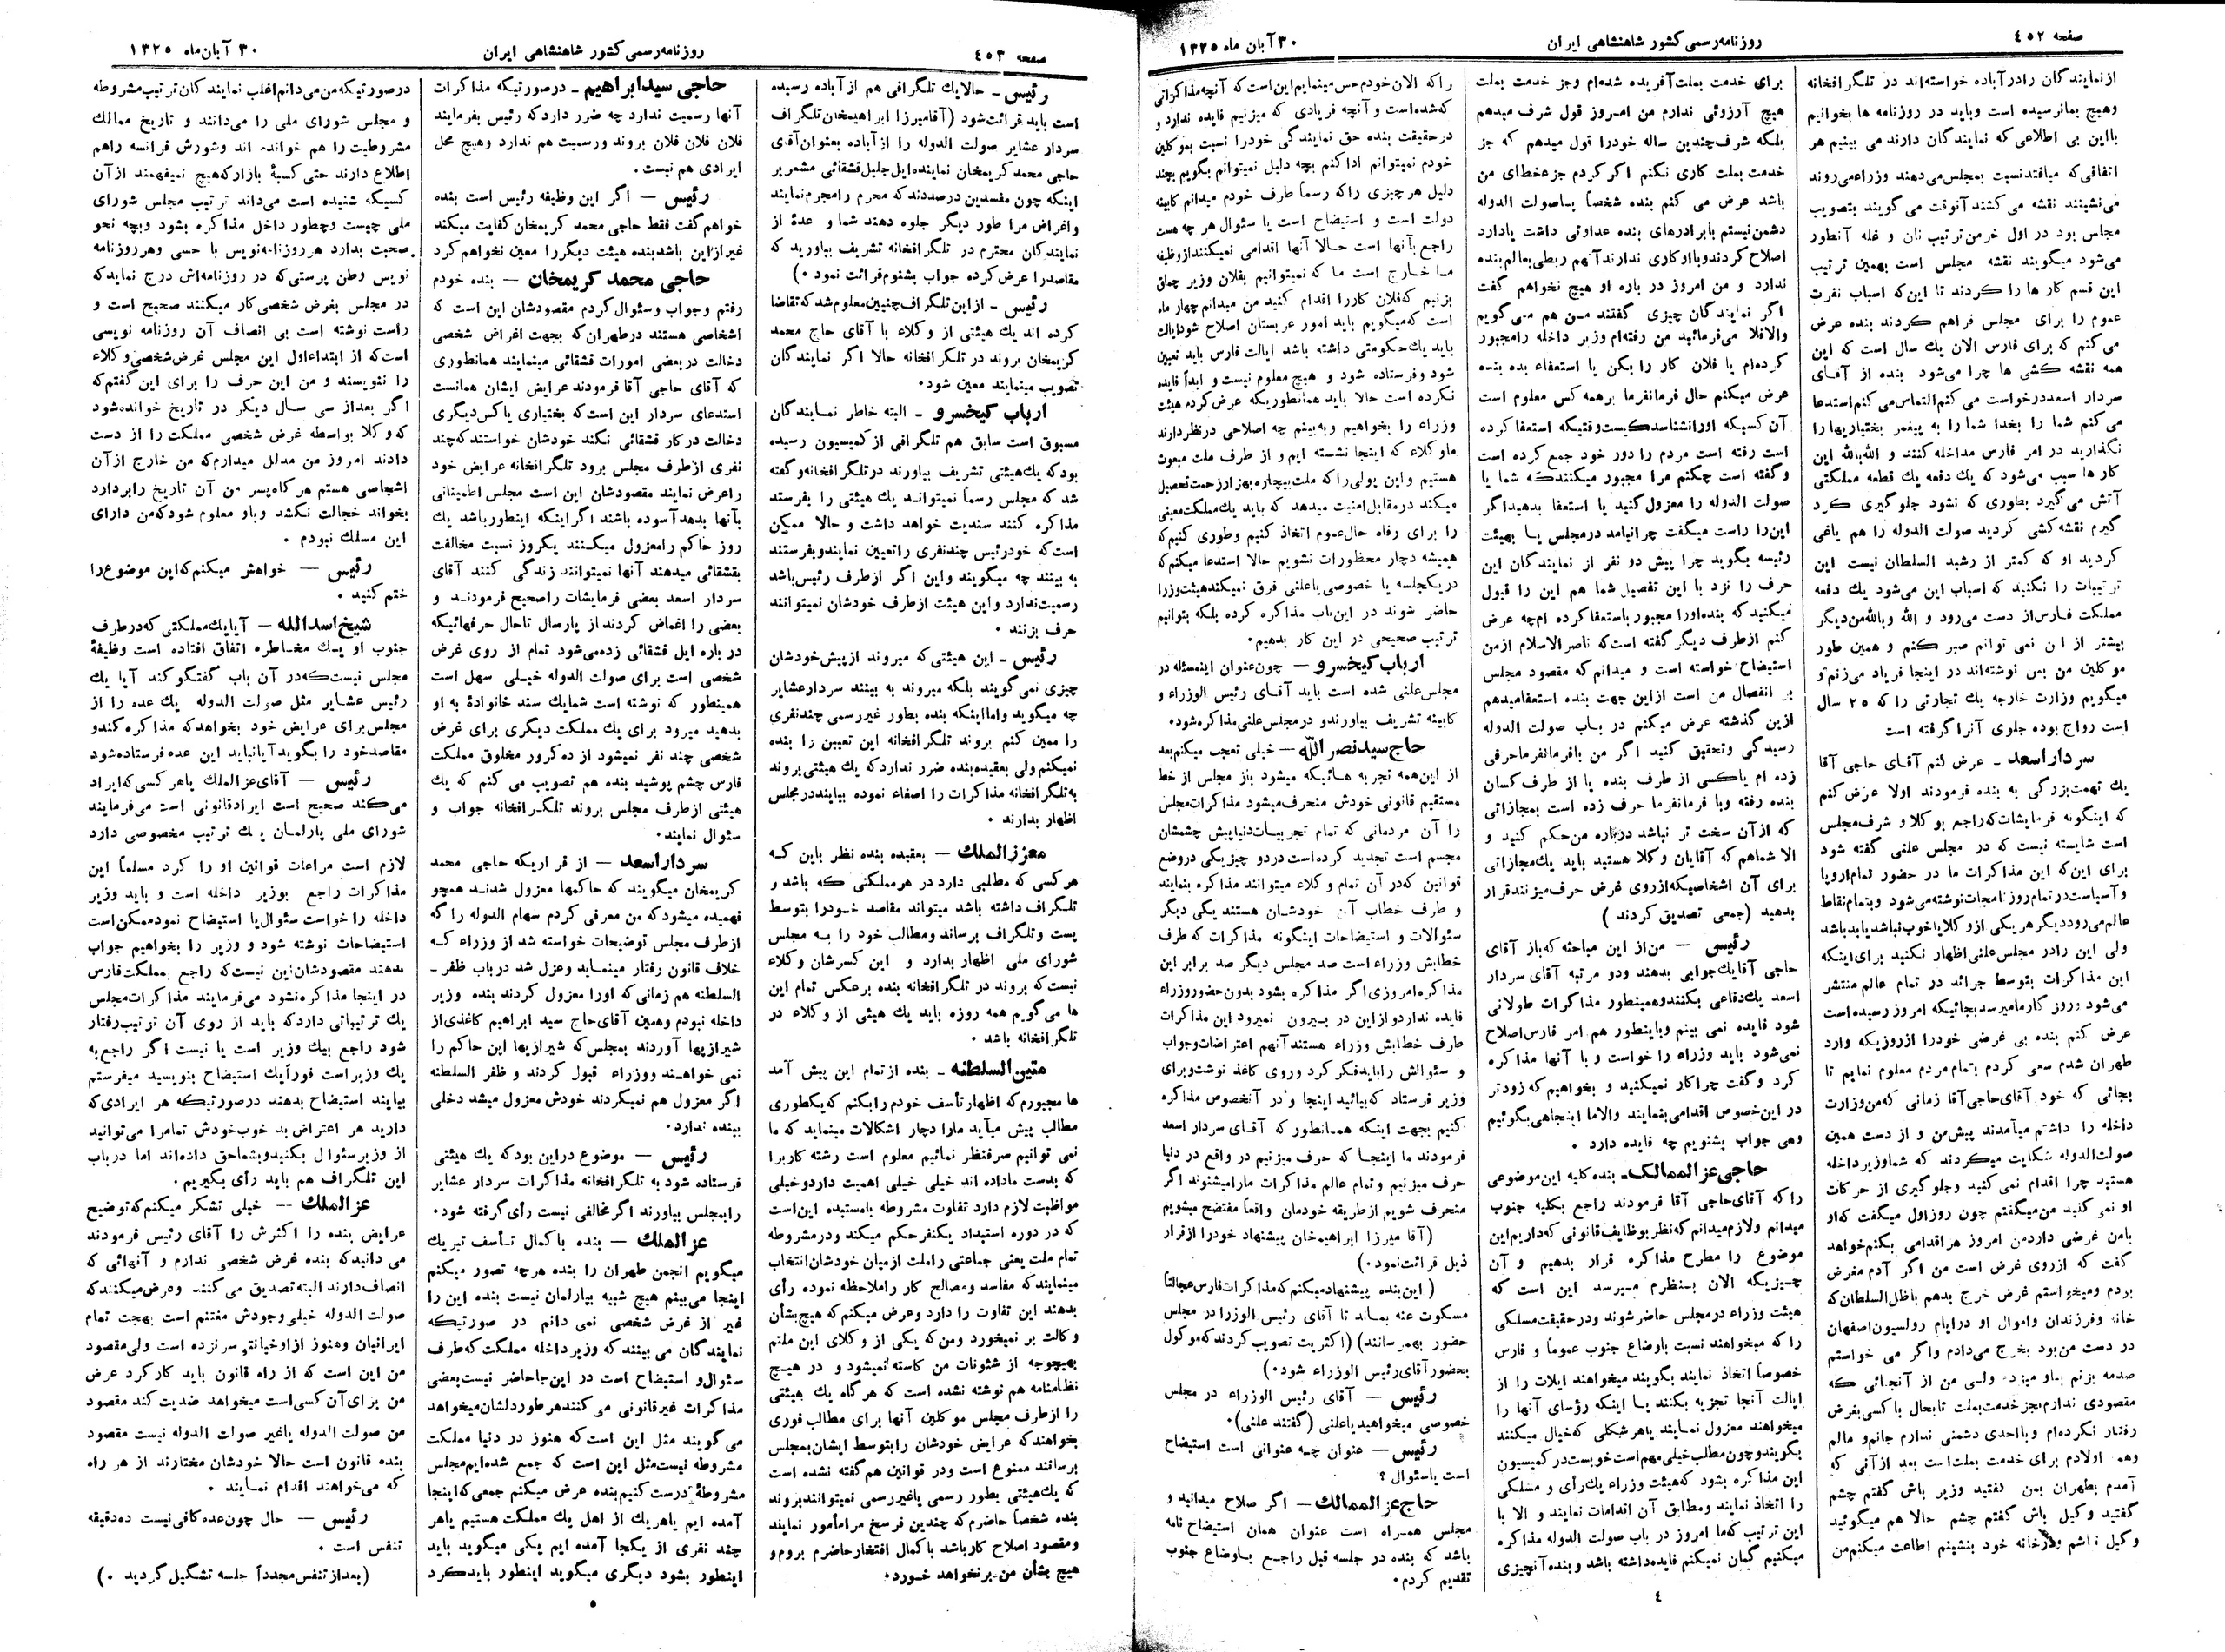 صفحه ٤٥٢
روزنامه رسمی کشور شاهنشاهی ایران
٣٠ آبان ماه ١٣٢٥
از نمایندگان را در آباده خواسته‌اند در تلگرافخانه
وهیچ بما نرسیده است و باید در روزنامه ها بخوانیم
با این بی اطلاعی که نمایندگان دارند می بینیم هر
اتفاقی که میافتد نسبت بمجلس می‌دهند وزراء می‌روند
می‌نشینند نقشه می‌کشند آنوقت می گویند بتصویب
مجلس بود در اول خرمن ترتیب نان و غله آنطور
می‌شود میگویند نقشه مجلس است بهمین ترتیب
این قسم کار ها را کردند تا این‌که اسباب نفرت
عموم را برای مجلس فراهم کردند بنده عرض
می‌کنم که برای فارس الان یك سال است که این
همه نقشه کشی ها چرا می‌شود بنده از آقای
سردار اسعد درخواست می کنم التماس می کنم استدعا
می کنم شما را بخدا شما را به پیغمبر بختیاریها را
نگذارید در امر فارس مداخله کنند و الله بالله این
کار ها سبب می‌شود که یك دفعه یك قطعه مملکتی
آتش می‌گیرد بطوری که نشود جلو گیری کرد
گیرم نقشه کشی کردید صولت الدوله را هم یاغی
کردید او که کمتر از رشید السلطان نیست این
ترتیبات را نکنید که اسباب این می‌شود یك دفعه
مملکت فارس از دست می‌رود و الله و بالله من دیگر
بیشتر از ان نمی توانم صبر کنم و همین طور
موکلین من بمن نوشته‌اند در اینجا فریاد می‌زنم و
میگویم وزارت خارجه یك تجارتی را که ٢٥ سال
است رواج بوده جلوی آنرا گرفته است
سردار اسعد ـ عرض کنم آقای حاجی آقا
یك تهمت بزرگی به بنده فرمودند اولا عرض کنم
که اینگونه فرمایشات که راجع بوکلا و شرف مجلس
است شایسته نیست که در مجلس علنی گفته شود
برای این‌که این مذاکرات ما در حضور تمام اروپا
و آسیاست در تمام روزنامجات نوشته می‌شود و بتمام نقاط
عالم می‌رود دیگر هر یکی از وکلا یا خوب نباشد یا بد باشد
ولی این را در مجلس علنی اظهار نکنید برای اینکه
این مذاکرات بتوسط جرائد در تمام عالم منتشر
می‌شود و روز کار ما میرسد بجائیکه امروز رسیده است
عرض کنم بنده بی غرضی خودرا از روزیکه وارد
طهران شدم سعی کردم بتمام مردم معلوم نمایم تا
بجائی که خود آقای حاجی آقا زمانی که من وزارت
داخله را داشتم میآمدند پیش من و از دست همین
صولت الدوله شکایت میکردند که شما وزیر داخله
هستید چرا اقدام نمی کنید و جلو گیری از حرکات
او نمی کنید من میگفتم چون روز اول میگفت که او
بامن غرضی دارد من امروز هر اقدامی بکنم خواهد
گفت که از روی غرض است من اگر آدم مغرض
بردم و میخواستم غرض خرج بدهم با ظل السلطان که
خانه و فرزندان و اموال او در ایام رولسیون اصفهان
در دست من بود بخرج می‌دادم و اگر می خواستم
صدمه بزنم باو میزدم ولی من از آنجائی که
مقصودی ندارم بجز خدمت بملت تا بحال با کسی بغرض
رفتار نکرده‌ام و با احدی دشمنی ندارم جانم و مالم
وهمه اولادم برای خدمت بملت است بعد از آنی که
آمدم بطهران بمن گفتید وزیر باش گفتم چشم
گفتید وکیل باش گفتم چشم حالا هم میگوئید
وکیل نباشم بلز خانه خود بنشینم اطاعت میکنم من
برای خدمت بملت آفریده شده‌ام و جز خدمت بملت
هیچ آرزوئی ندارم من امروز قول شرف میدهم
بلکه شرف چندین ساله خودرا قول میدهم که جز
خدمت بملت کاری نکنم اگر کردم جزء خطای من
باشد عرض می کنم بنده شخصاً با صولت الدوله
دشمن نیستم با برادرهای بنده عداوتی داشت یا دارد
اصلاح کردند و با او کاری ندارند آنهم ربطی بعالم بنده
ندارد و من امروز در باره او هیچ نخواهم گفت
اگر نمایندگان چیزی گفتند من هم می گویم
والا فلا می‌فرمائید من رفته‌ام وزیر داخله را مجبور
کرده‌ام یا فلان کار را بکن یا استعفاء بده بنده
عرض میکنم حال فرمانفرما بر همه کس معلوم است
آن کسیکه اورا نشناسد کیست و قتیکه استعفا کرده
است رفته است مردم را دور خود جمع کرده است
و گفته است چکنم مرا مجبور میکنند که شما یا
صولت الدوله را معزول کنید یا استعفا بدهید اگر
این را راست میگفت چرا نیامد در مجلس یا بهیئت
رئیسه بگوید چرا پیش دو نفر از نمایندگان این
حرف را نزد با این تفصیل شما هم این را قبول
میکنید که بنده اورا مجبور باستعفا کرده ام چه عرض
کنم از طرف دیگر گفته است که ناصر الاسلام از من
استیضاح خواسته است و میدانم که مقصود مجلس
بر انفصال من است از این جهت بنده استعفا میدهم
از این گذشته عرض میکنم در باب صولت الدوله
رسیدگی و تحقیق کنید اگر من با فرمانفرما حرفی
زده ام یا کسی از طرف بنده یا از طرف کسان
بنده رفته و با فرمانفرما حرف زده است بمجازاتی
که از آن سخت تر نباشد درباره من حکم کنید و
الا شماهم که آقایان وکلا هستید باید یك مجازاتی
برای آن اشخاصیکه از روی غرض حرف میزنند قرار
بدهید (جمعی تصدیق کردند)
رئیس — من از این مباحثه که باز آقای
حاجی آقا یك جوابی بدهند و دو مرتبه آقای سردار
اسعد یك دفاعی بکنند و همینطور مذاکرات طولانی
شود فایده نمی بینم و باینطور هم امر فارس اصلاح
نمی‌شود باید وزراء را خواست و با آنها مذاکره
کرد و گفت چرا کار نمیکنید و بخواهیم که زودتر
در این خصوص اقدامی بنمایند والا ما اینجا هی بگوئیم
وهی جواب بشنویم چه فایده دارد .
حاجی عز الممالک ـ بنده کلیه این موضوعی
را که آقای حاجی آقا فرمودند راجع بکلیه جنوب
میدانم ولازم میدانم که نظر بوظایف قانونی که داریم این
موضوع را مطرح مذاکره قرار بدهیم و آن
چیزیکه الان بنظرم میرسد این است که
هیئت وزراء در مجلس حاضر شوند و در حقیقت مسلکی
را که میخواهند نسبت باوضاع جنوب عموماً و فارس
خصوصاً اتخاذ نمایند بگویند میخواهند ایلات را از
ایالت آنجا تجزیه بکنند یا اینکه رؤسای آنها را
میخواهند معزول نمایند یا هر شکلی که خیال میکنند
بگویند و چون مطلب خیلی مهم است خوبست در کمیسیون
این مذاکره بشود که هیئت وزراء یك رأی و مسلکی
را اتخاذ نمایند و مطابق آن اقدامات نمایند و الا با
این ترتیب که ما امروز در باب صولت الدوله مذاکره
میکنیم گمان نمیکنم فایده داشته باشد و بنده آنچیزی
را که الان خودم حس مینمایم این است که آنچه مذاکراتی
که شده است و آنچه فریادی که میزنیم فایده ندارد و
در حقیقت بنده حق نمایندگی خودرا نسبت بموکلین
خودم نمیتوانم ادا کنم بچه دلیل نمیتوانم بگویم بچند
دلیل هر چیزی را که رسماً طرف خودم میدانم کابینه
دولت است و استیضاح است یا سئوال هر چه هست
راجع بآنها است حالا آنها اقدامی نمیکنند از وظیفه
ما خارج است ما که نمیتوانیم بفلان وزیر چماق
بزنیم که فلان کاررا اقدام کنید من میدانم چهار ماه
است که میگویم باید امور عربستان اصلاح شود ایالت
باید یك حکومتی داشته باشد ایالت فارس باید تعیین
شود و فرستاده شود و هیچ معلوم نیست و ابداً فایده
نکرده است حالا باید همانطوریکه عرض کردم هیئت
وزراء را بخواهیم و به‌بینم چه اصلاحی در نظر دارند
ما وکلاء که اینجا نشسته ایم و از طرف ملت مبعوث
هستیم و این پولی را که ملت بیچاره بهزار زحمت تحصیل
میکند در مقابل امنیت میدهد که باید یك مملکت معینی
را برای رفاه حال عموم اتخاذ کنیم و طوری کنیم که
همیشه دچار محظورات نشویم حالا استدعا میکنم که
در یکجلسه یا خصوصی یا علنی فرق نمیکند هیئت وزرا
حاضر شوند در این باب مذاکره کرده بلکه بتوانیم
ترتیب صحیحی در این کار بدهیم.
ارباب کیخسرو — چون عنوان این مسئله در
مجلس علنی شده است باید آقای رئیس الوزراء و
کابینه تشریف بیاورند و در مجلس علنی مذاکره شود.
حاج سید نصر الله — خیلی تعجب میکنم بعد
از این همه تجربه هائیکه میشود باز مجلس از خط
مستقیم قانونی خودش منحرف میشود مذاکرات مجلس
را آن مردمانی که تمام تجربیات دنیا پیش چشمشان
مجسم است تجدید کرده است در دو چیز یکی در وضع
قوانین که در آن تمام وکلاء میتوانند مذاکره بنمایند
و طرف خطاب آن خودشان هستند یکی دیگر
سئوالات و استیضاحات اینگونه مذاکرات که طرف
خطابش وزراء است صد مجلس دیگر صد برابر این
مذاکره امروزی اگر مذاکره بشود بدون حضور وزراء
فایده ندارد و از این در بیرون نمیرود این مذاکرات
طرف خطابش وزراء هستند آنهم اعتراضات و جواب
و سئوالش را باید فکر کرد و روی کاغذ نوشت و برای
وزیر فرستاد که بیائید اینجا و در آنخصوص مذاکره
کنیم بجهت اینکه همانطور که آقای سردار اسعد
فرمودند ما اینجا که حرف میزنیم در واقع در دنیا
حرف میزنیم و تمام عالم مذاکرات مارا میشنوند اگر
منحرف شویم از طریقه خودمان واقعاً مفتضح میشویم
(آقا میرزا ابراهیمخان پیشنهاد خودرا از قرار
ذیل قرائت نمود.)
(این بنده پیشنهاد میکنم که مذاکرات فارس عجالتاً
مسکوت عنه بماند تا آقای رئیس الوزرا در مجلس
حضور بهمرسانند) (اکثریت تصویب کردند که موکول
بحضور آقای رئیس الوزراء شود.)
رئیس — آقای رئیس الوزراء در مجلس
خصوصی میخواهید یا علنی (گفتند علنی).
رئیس — عنوان چه عنوانی است استیضاح
است یا سئوال ؟
حاج عز الممالك — اگر صلاح میدانید و
مجلس همراه است عنوان همان استیضاح نامه
باشد که بنده در جلسه قبل راجع باوضاع جنوب
تقدیم کردم.
٤
صفحه ٤٥٣
روزنامه رسمی کشور شاهنشاهی ایران
٣٠ آبان ماه ١٣٢٥
رئیس ـ حالا یك تلگرافی هم از آباده رسیده
است باید قرائت شود (آقا میرزا ابراهیمخان تلگراف
سردار عشایر صولت الدوله را از آباده بعنوان آقای
حاجی محمد کریمخان نماینده ایل جلیل قشقائی مشعر بر
اینکه چون مفسدین در صددند که محرم را مجرم نمایند
و اغراض مرا طور دیگر جلوه دهند شما و عدهٔ از
نمایندگان محترم در تلگرافخانه تشریف بیاورید که
مقاصدرا عرض کرده جواب بشنوم قرائت نمود.)
رئیس ـ از این تلگراف چنین معلوم شد که تقاضا
کرده اند یك هیئتی از وکلاء با آقای حاج محمد
کریمخان بروند در تلگرافخانه حالا اگر نمایندگان
تصویب مینمایند معین شود.
ارباب کیخسرو ـ البته خاطر نمایندگان
مسبوق است سابق هم تلگرافی از کمیسیون رسیده
بود که یك هیئتی تشریف بیاورند در تلگرافخانه و گفته
شد که مجلس رسماً نمیتواند یك هیئتی را بفرستد
مذاکره کنند سندیت خواهد داشت و حالا ممکن
است که خود رئیس چند نفری را تعیین نمایند و بفرستند
به بینند چه میگویند و این اگر از طرف رئیس باشد
رسمیت ندارد و این هیئت از طرف خودشان نمیتوانند
حرف بزنند .
رئیس ـ این هیئتی که میروند از پیش خودشان
چیزی نمی گویند بلکه میروند به بینند سردار عشایر
چه میگوید و اما اینکه بنده بطور غیر رسمی چند نفری
را معین کنم بروند تلگرافخانه این تعیین را بنده
نمیکنم ولی بعقیده بنده ضرر ندارد که یك هیئتی بروند
به تلگرافخانه مذاکرات را اصفاء نموده بیایند در مجلس
اظهار بدارند .
معزز الملك — بعقیده بنده نظر باین که
هر کسی که مطلبی دارد در هر مملکتی که باشد و
تلگراف داشته باشد میتواند مقاصد خودرا بتوسط
پست و تلگراف برساند و مطالب خود را به مجلس
شورای ملی اظهار بدارد و این کسرشان وکلاء
نیست که بروند در تلگرافخانه بنده برعکس تمام این
ها می‌گویم همه روزه باید یك هیئتی از وکلاء در
تلگرافخانه باشد .
متین السلطنه ـ بنده از تمام این پیش آمد
ها مجبورم که اظهار تأسف خودم را بکنم که یکطوری
مطالب پیش میآید مارا دچار اشکالات مینماید که ما
نمی توانیم صرفنظر نمائیم معلوم است رشته کار برا
که بدست ماداده اند خیلی خیلی اهمیت دارد و خیلی
مواظبت لازم دارد تفاوت مشروطه با مستبده این است
که در دوره استبداد یکنفر حکم میکند و در مشروطه
تمام ملت یعنی جماعتی را ملت از میان خودشان انتخاب
مینمایند که مفاسد و مصالح کار را ملاحظه نموده رأی
بدهند این تفاوت را دارد و عرض میکنم که هیچ بشأن
وکالت بر نمیخورد و من که یکی از وکلای این ملتم
بهیچوجه از شئونات من کاسته نمیشود و در هیچ
نظامنامه هم نوشته نشده است که هر گاه یك هیئتی
را از طرف مجلس موکلین آنها برای مطالب فوری
بخواهند که عرایض خودشان را بتوسط ایشان بمجلس
برسانند ممنوع است و در قوانین هم گفته نشده است
که یك هیئتی بطور رسمی یا غیر رسمی نمیتوانند بروند
بنده شخصاً حاضرم که چندین فرسخ مرا مأمور نمایند
و مقصود اصلاح کار باشد با کمال افتخار حاضرم بروم و
هیچ بشأن من بر نخواهد خورد.
حاجی سید ابراهیم ـ در صورتیکه مذاکرات
آنها رسمیت ندارد چه ضرر دارد که رئیس بفرمایند
فلان فلان فلان بروند و رسمیت هم ندارد و هیچ محل
ایرادی هم نیست.
رئیس — اگر این وظیفه رئیس است بنده
خواهم گفت فقط حاجی محمد کریمخان کفایت میکند
غیر از این باشد بنده هیئت دیگر را معین نخواهم کرد
حاجی محمد کریمخان — بنده خودم
رفتم و جواب و سئوال کردم مقصودشان این است که
اشخاصی هستند در طهران که بجهت اغراض شخصی
دخالت در بعضی امورات قشقائی مینمایند همانطوری
که آقای حاجی آقا فرمودند عرایض ایشان همانست
استدعای سردار این است که بختیاری یا کس دیگری
دخالت در کار قشقائی نکند خودشان خواستند که چند
نفری از طرف مجلس برود تلگرافخانه عرایض خود
را عرض نمایند مقصودشان این است مجلس اطمینانی
بآنها بدهد آسوده باشند اگر اینکه اینطور باشد یك
روز حاکم را معزول میکنند یکروز نسبت مخالفت
بقشقائی میدهند آنها نمیتوانند زندگی کنند آقای
سردار اسعد بعضی فرمایشات را صحیح فرمودند و
بعضی را اغماض کردند از پارسال تا حال حرفهائیکه
در باره ایل قشقائی زده می‌شود تمام از روی غرض
شخصی است برای صولت الدوله خیلی سهل است
همینطور که نوشته است شما یك سند خانوادهٔ به او
بدهید میرود برای یك مملکت دیگری برای غرض
شخصی چند نفر نمیشود از ده کرور مخلوق مملکت
فارس چشم پوشید بنده هم تصویب می کنم که یك
هیئتی از طرف مجلس بروند تلگرافخانه جواب و
سئوال نمایند.
سردار اسعد — از قراریکه حاجی محمد
کریمخان میگویند که حاکمها معزول شدند همچو
فهمیده میشود که من معرفی کردم سهام الدوله را که
از طرف مجلس توضیحات خواسته شد از وزراء که
خلاف قانون رفتار مینماید و عزل شد در باب ظفر ـ
السلطنه هم زمانی که اورا معزول کردند بنده وزیر
داخله نبودم و همین آقای حاج سید ابراهیم کاغذی از
شیرازیها آوردند بمجلس که شیرازیها این حاکم را
نمی خواهند و وزراء قبول کردند و ظفر السلطنه
اگر معزول هم نمیکردند خودش معزول میشد دخلی
ببنده ندارد.
رئیس — موضوع در این بود که یك هیئتی
فرستاده شود به تلگرافخانه مذاکرات سردار عشایر
را بمجلس بیاورند اگر مخالفی نیست رأی گرفته شود.
عز الملك — بنده با کمال تأسف تبریك
میگویم انجمن طهران را بنده هرچه تصور میکنم
اینجا می‌بینم هیچ شبیه بپارلمان نیست بنده این را
غیر از غرض شخصی نمی دانم در صورتیکه
نمایندگان می بینند که وزیر داخله مملکت که طرف
سئوال و استیضاح است در این جا حاضر نیست بعضی
مذاکرات غیر قانونی می کنند هر طور دلشان میخواهد
می گویند مثل این است که هنوز در دنیا مملکت
مشروطه نیست مثل این است که جمع شده‌ایم مجلس
مشروطهٔ درست کنیم بنده عرض میکنم جمعی که اینجا
آمده ایم یا هر یك از اهل یك مملکت هستیم یا هر
چند نفری از یکجا آمده ایم یکی میگوید باید
اینطور بشود دیگری میگوید اینطور باید کرد
در صورتیکه من می‌دانم اغلب نمایندگان ترتیب مشروطه
و مجلس شورای ملی را می‌دانند و تاریخ ممالك
مشروطیت را هم خوانده اند و شورش فرانسه را هم
اطلاع دارند حتی کسبهٔ بازار که هیچ نمیفهمند از آن
کسیکه شنیده است می‌داند ترتیب مجلس شورای
ملی چیست و چطور داخل مذاکره بشود و بچه نحو
صحبت بدارد هر روزنامه نویس با حسی و هر روزنامه
نویس وطن پرستی که در روزنامه‌اش درج نماید که
در مجلس بغرض شخصی کار میکنند صحیح است و
راست نوشته است بی انصاف آن روزنامه نویسی
است که از ابتداء اول این مجلس غرض شخصی وکلاء
را ننویسند و من این حرف را برای این گفتم که
اگر بعد از سی سال دیگر در تاریخ خوانده شود
که وکلا بواسطه غرض شخصی مملکت را از دست
دادند امروز من مدلل میدارم که من خارج از آن
اشخاصی هستم هر گاه پسر من آن تاریخ را بردارد
بخواند خجالت نکشد و باو معلوم شود که من دارای
این مسلك نبودم .
رئیس — خواهش میکنم که این موضوع را
ختم کنید .
شیخ اسدالله — آیا یك مملکتی که در طرف
جنوب او یك مخاطره اتفاق افتاده است وظیفهٔ
مجلس نیست که در آن باب گفتگو کند آیا یك
رئیس عشایر مثل صولت الدوله یك عده را از
مجلس برای عرایض خود بخواهد که مذاکره کند و
مقاصد خود را بگوید آیا نباید این عده فرستاده شود
رئیس — آقای عز الملك یا هر کسی که ایراد
می‌کند صحیح است ایراد قانونی است می‌فرمایند
شورای ملی پارلمان یك ترتیب مخصوصی دارد
لازم است مراعات قوانین او را کرد مسلماً این
مذاکرات راجع بوزیر داخله است و باید وزیر
داخله را خواست سئوال یا استیضاح نمود ممکن است
استیضاحات نوشته شود و وزیر را بخواهیم جواب
بدهند مقصودشان این نیست که راجع بمملکت فارس
در اینجا مذاکره نشود می‌فرمایند مذاکرات مجلس
یك ترتیباتی دارد که باید از روی آن ترتیب رفتار
شود راجع بیك وزیر است یا نیست اگر راجع به
یك وزیر است فوراً یك استیضاح بنویسید میفرستم
بیایند استیضاح بدهند در صورتیکه هر ایرادی که
دارید هر اعتراض بد خوب خودش تمام را می‌توانید
از وزیر سئوال بکنید و بشما حق داده‌اند اما در باب
این تلگراف هم باید رأی بگیریم.
عز الملك — خیلی تشکر میکنم که توضیح
عرایض بنده را اکثرش را آقای رئیس فرمودند
می دانید که بنده غرض شخصی ندارم و آنهائی که
انصاف دارند البته تصدیق می کنند و عرض میکنند که
صولت الدوله خیلی وجودش مغتنم است بهجت تمام
ایرانیان و هنوز از او خیانتی سر نزده است ولی مقصود
من این است که از راه قانون باید کار کرد عرض
من برای آن کسی است میخواهد ضدیت کند مقصود
من صولت الدوله یا غیر صولت الدوله نیست مقصود
بنده قانون است حالا خودشان مختارند از هر راه
که می‌خواهند اقدام نمایند .
رئیس — حال چون عده کافی نیست ده دقیقه
تنفس است .
(بعد از تنفس مجدداً جلسه تشکیل گردید .)
٥